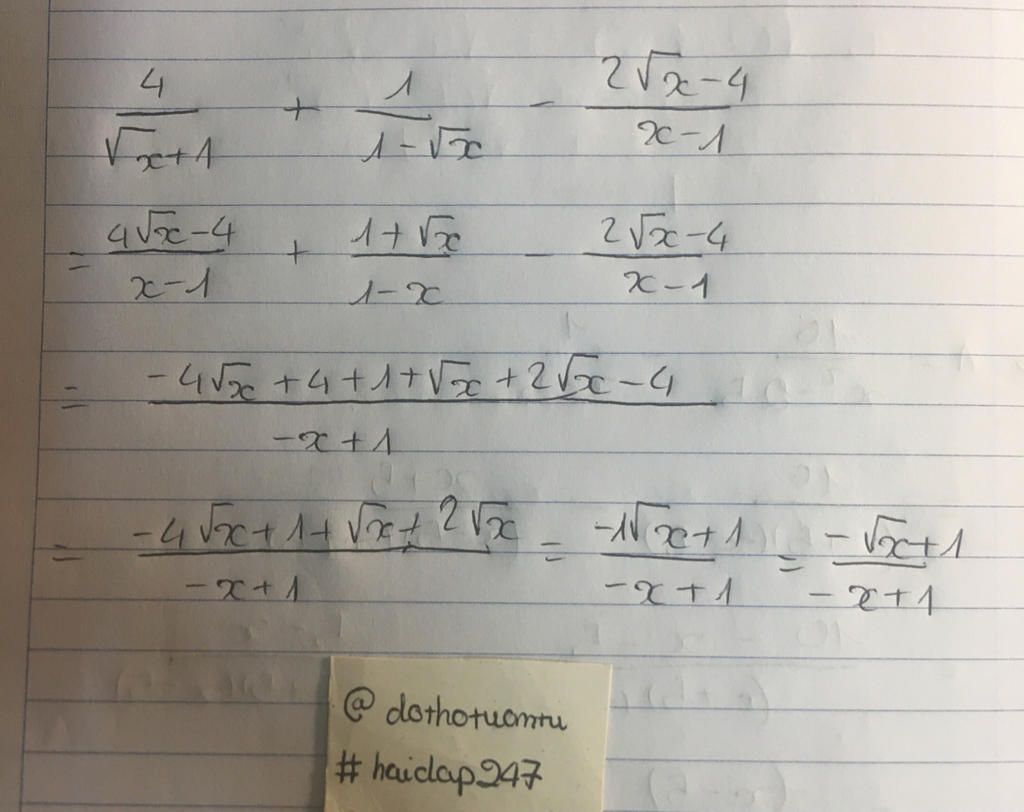 4/(√x+1) + 1/(1-√x) - (2√x-4)/(x-1)
= (4√x-4)/(x-1) + (1+√x)/(1-x) - (2√x-4)/(x-1)
= (-4√x+4+1+√x+2√x-4)/(-x+1)
= (-4√x+1+√x+2√x)/(-x+1) = (-1√x+1)/(-x+1) = (-√x+1)/(-x+1)
@ dothotuomtu
# hoidap247